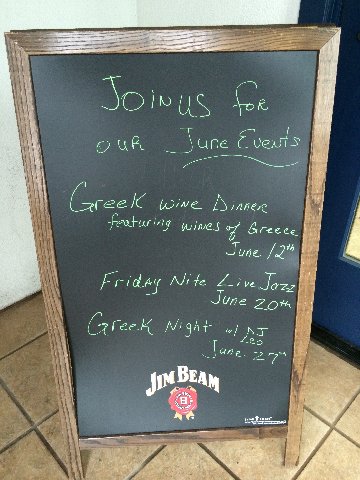 Join us for
our June Events
Greek Wine Dinner
featuring wines of Greece
June 12th
Friday Nite Live Jazz
June 20th
Greek Night w/ DJ
Leo
June 27th
JIM BEAM
B